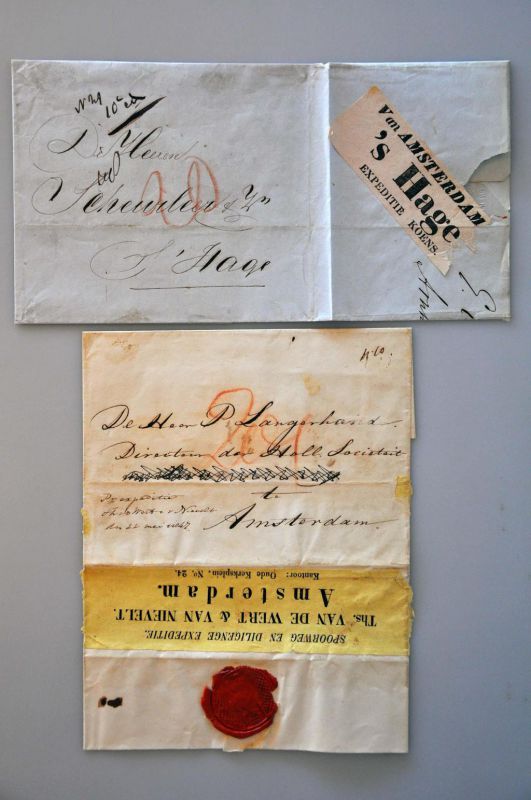 10
De Heeren
Scheurleer & Zn
S'Hage
20
Van AMSTERDAM
's Hage
EXPEDITIE KOENS.
De Heer P. Langerhand.
Directeur der Holl. Societeit
te
Amsterdam.
Per expeditie
den 22 mei 1847
SPOORWEG EN DILIGENCE EXPEDITIE.
Ths. VAN DE WERT & VAN NIEVELT.
Amsterdam.
Kantoor: Oude Kerksplein, No. 24.